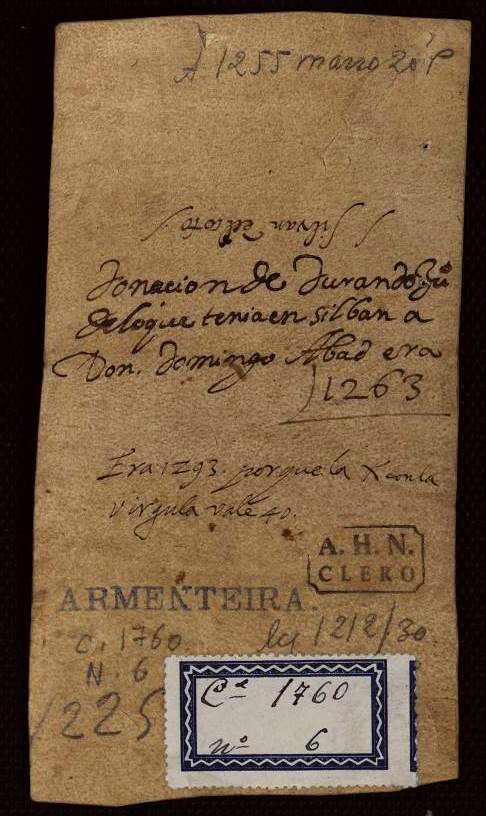 A 1255 marzo 20 P
Silvan Zelicoto
Donacion de Durando Zu
de loque tenia en silban a
Don. Domingo Abad era
1263
Era 1293. porque la X con la
virgula vale 40.
A. H. N.
CLERO
ARMENTEIRA.
C. 1760
N. 6
leg 1212/30
1225
Cª 1760
nº 6